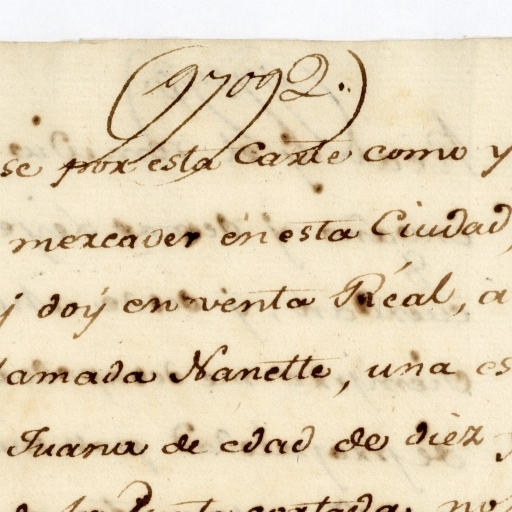 (97092.)
se por esta Carte como y
mercader en esta Ciudad,
y doÿ en venta Réal, a
lamada Nanette, una es
Juana de edad de diéz y